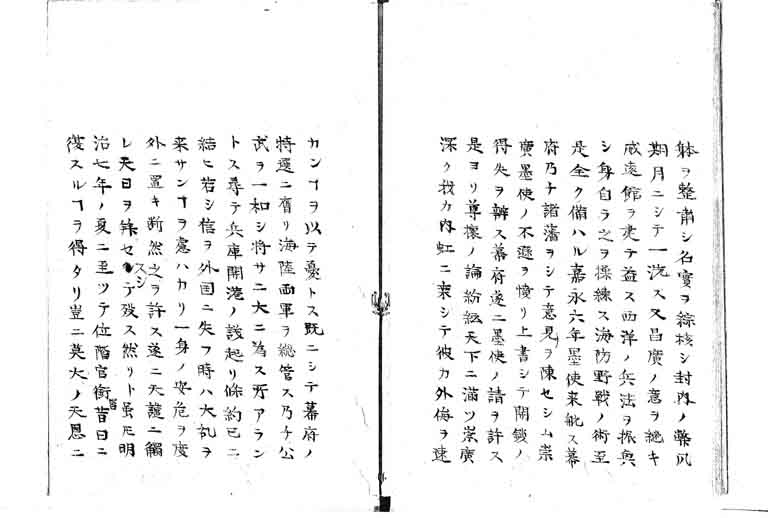 躰ヲ整肅シ名實ヲ綜核シ封内ノ弊風
期月ニシテ一洗ス又昌廣ノ意ヲ継キ
威遠館ヲ建テ益ス西洋ノ兵法ヲ振興
シ身自ラ之ヲ操練ス海防野戰ノ術至
是全ク備ハル嘉永六年墨使来航ス幕
府乃チ諸藩ヲシテ意見ヲ陳セシム崇
廣墨使ノ不遜ヲ憤リ上書シテ開鎖ノ
得失ヲ辨ス幕府遂ニ墨使ノ請ヲ許ス
是ヨリ尊攘ノ論紛紜天下ニ滿ツ崇廣
深ク我カ内虹ニ乗シテ彼カ外侮ヲ速
カンヿヲ以テ憂トス既ニシテ幕府ノ
特選ニ膺リ海陸両軍ヲ総管ス乃チ公
武ヲ一和シ将サニ大ニ為ス所アラン
トス尋テ兵庫開港ノ議起リ條約已ニ
結ヒ若シ信ヲ外国ニ失フ時ハ大乱ヲ
来サンヿヲ慮ハカリ一身ノ安危ヲ度
外ニ置キ断然之ヲ許ス遂ニ天譴ニ觸
レ天日ヲ拜セスシテ歿ス然リト虽モ明
治七年ノ夏ニ至ツテ位階官銜皆昔日ニ
復スルヿヲ得タリ豈ニ莫大ノ天恩ニ